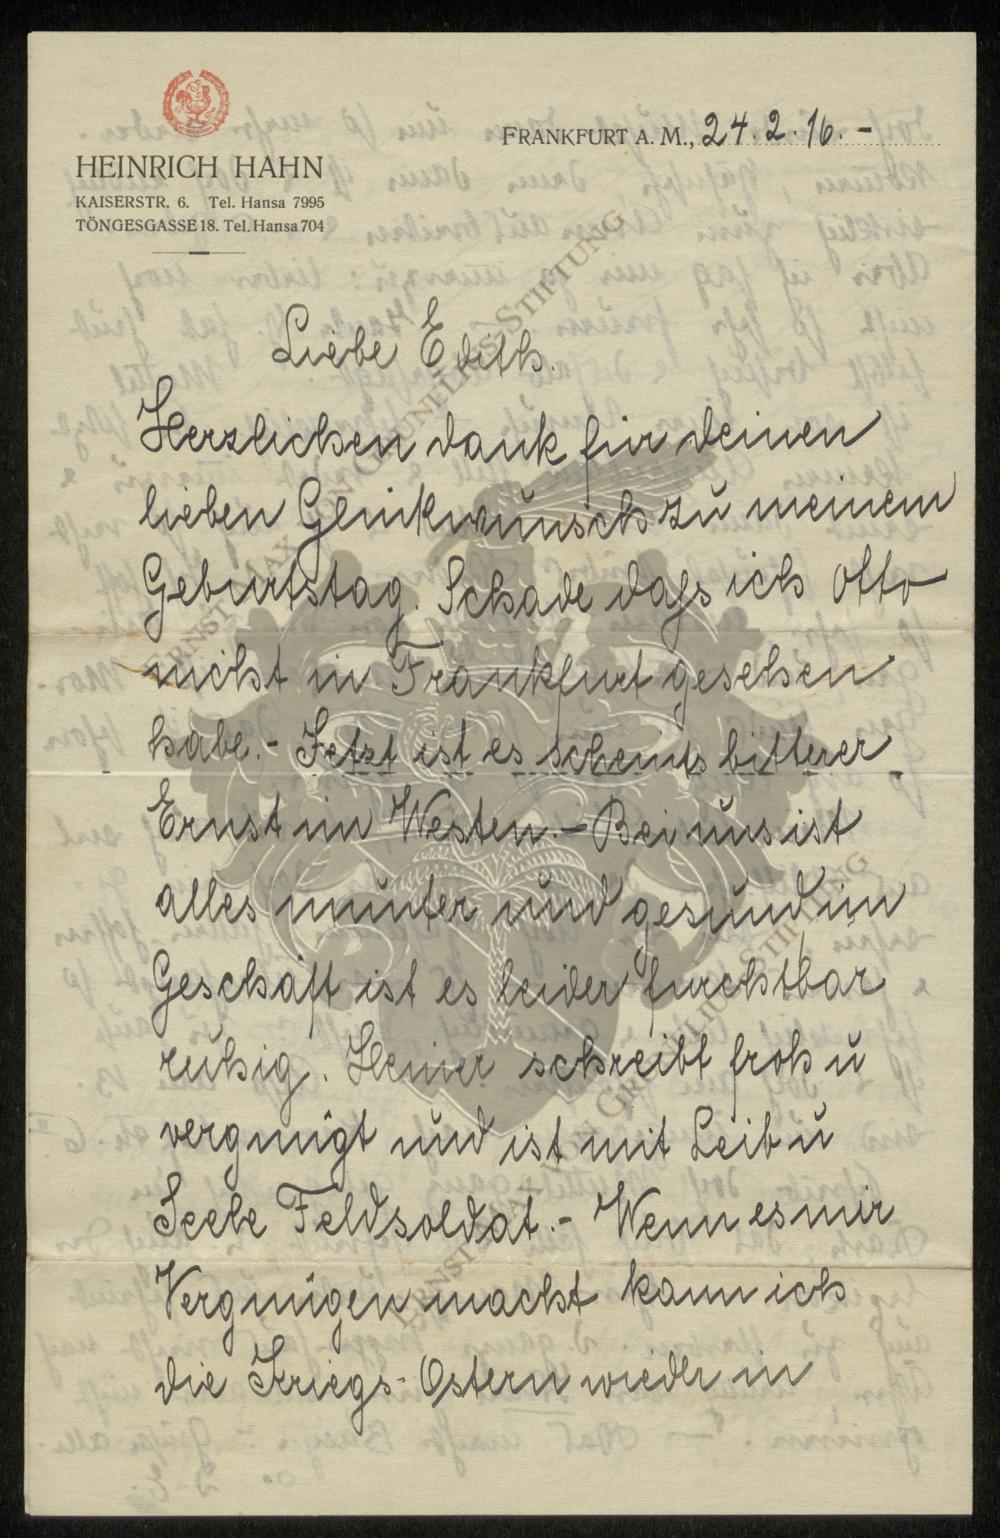 HEINRICH HAHN
KAISERSTR. 6. Tel. Hansa 7995
TÖNGESGASSE 18. Tel. Hansa 704
FRANKFURT A. M., 24. 2. 16. -
Liebe Edith.
Herzlichen dank für deinen
lieben Glückwunsch zu meinem
Geburtstag. Schade dass ich Otto
nicht in Frankfurt gesehen
habe. - Jetzt ist es scheints bitterer
Ernst im Westen. - Bei uns ist
alles munter und gesund, im
Geschäft ist es leider furchtbar
ruhig. Heiner schreibt froh u
vergnügt und ist mit Leib u
Seele Feldsoldat. - Wenn es mir
Vergnügen macht kann ich
die Kriegs-Ostern wieder in
ERNST MAX VON GRUNELIUS-STIFTUNG
ERNST MAX VON GRUNELIUS-STIFTUNG